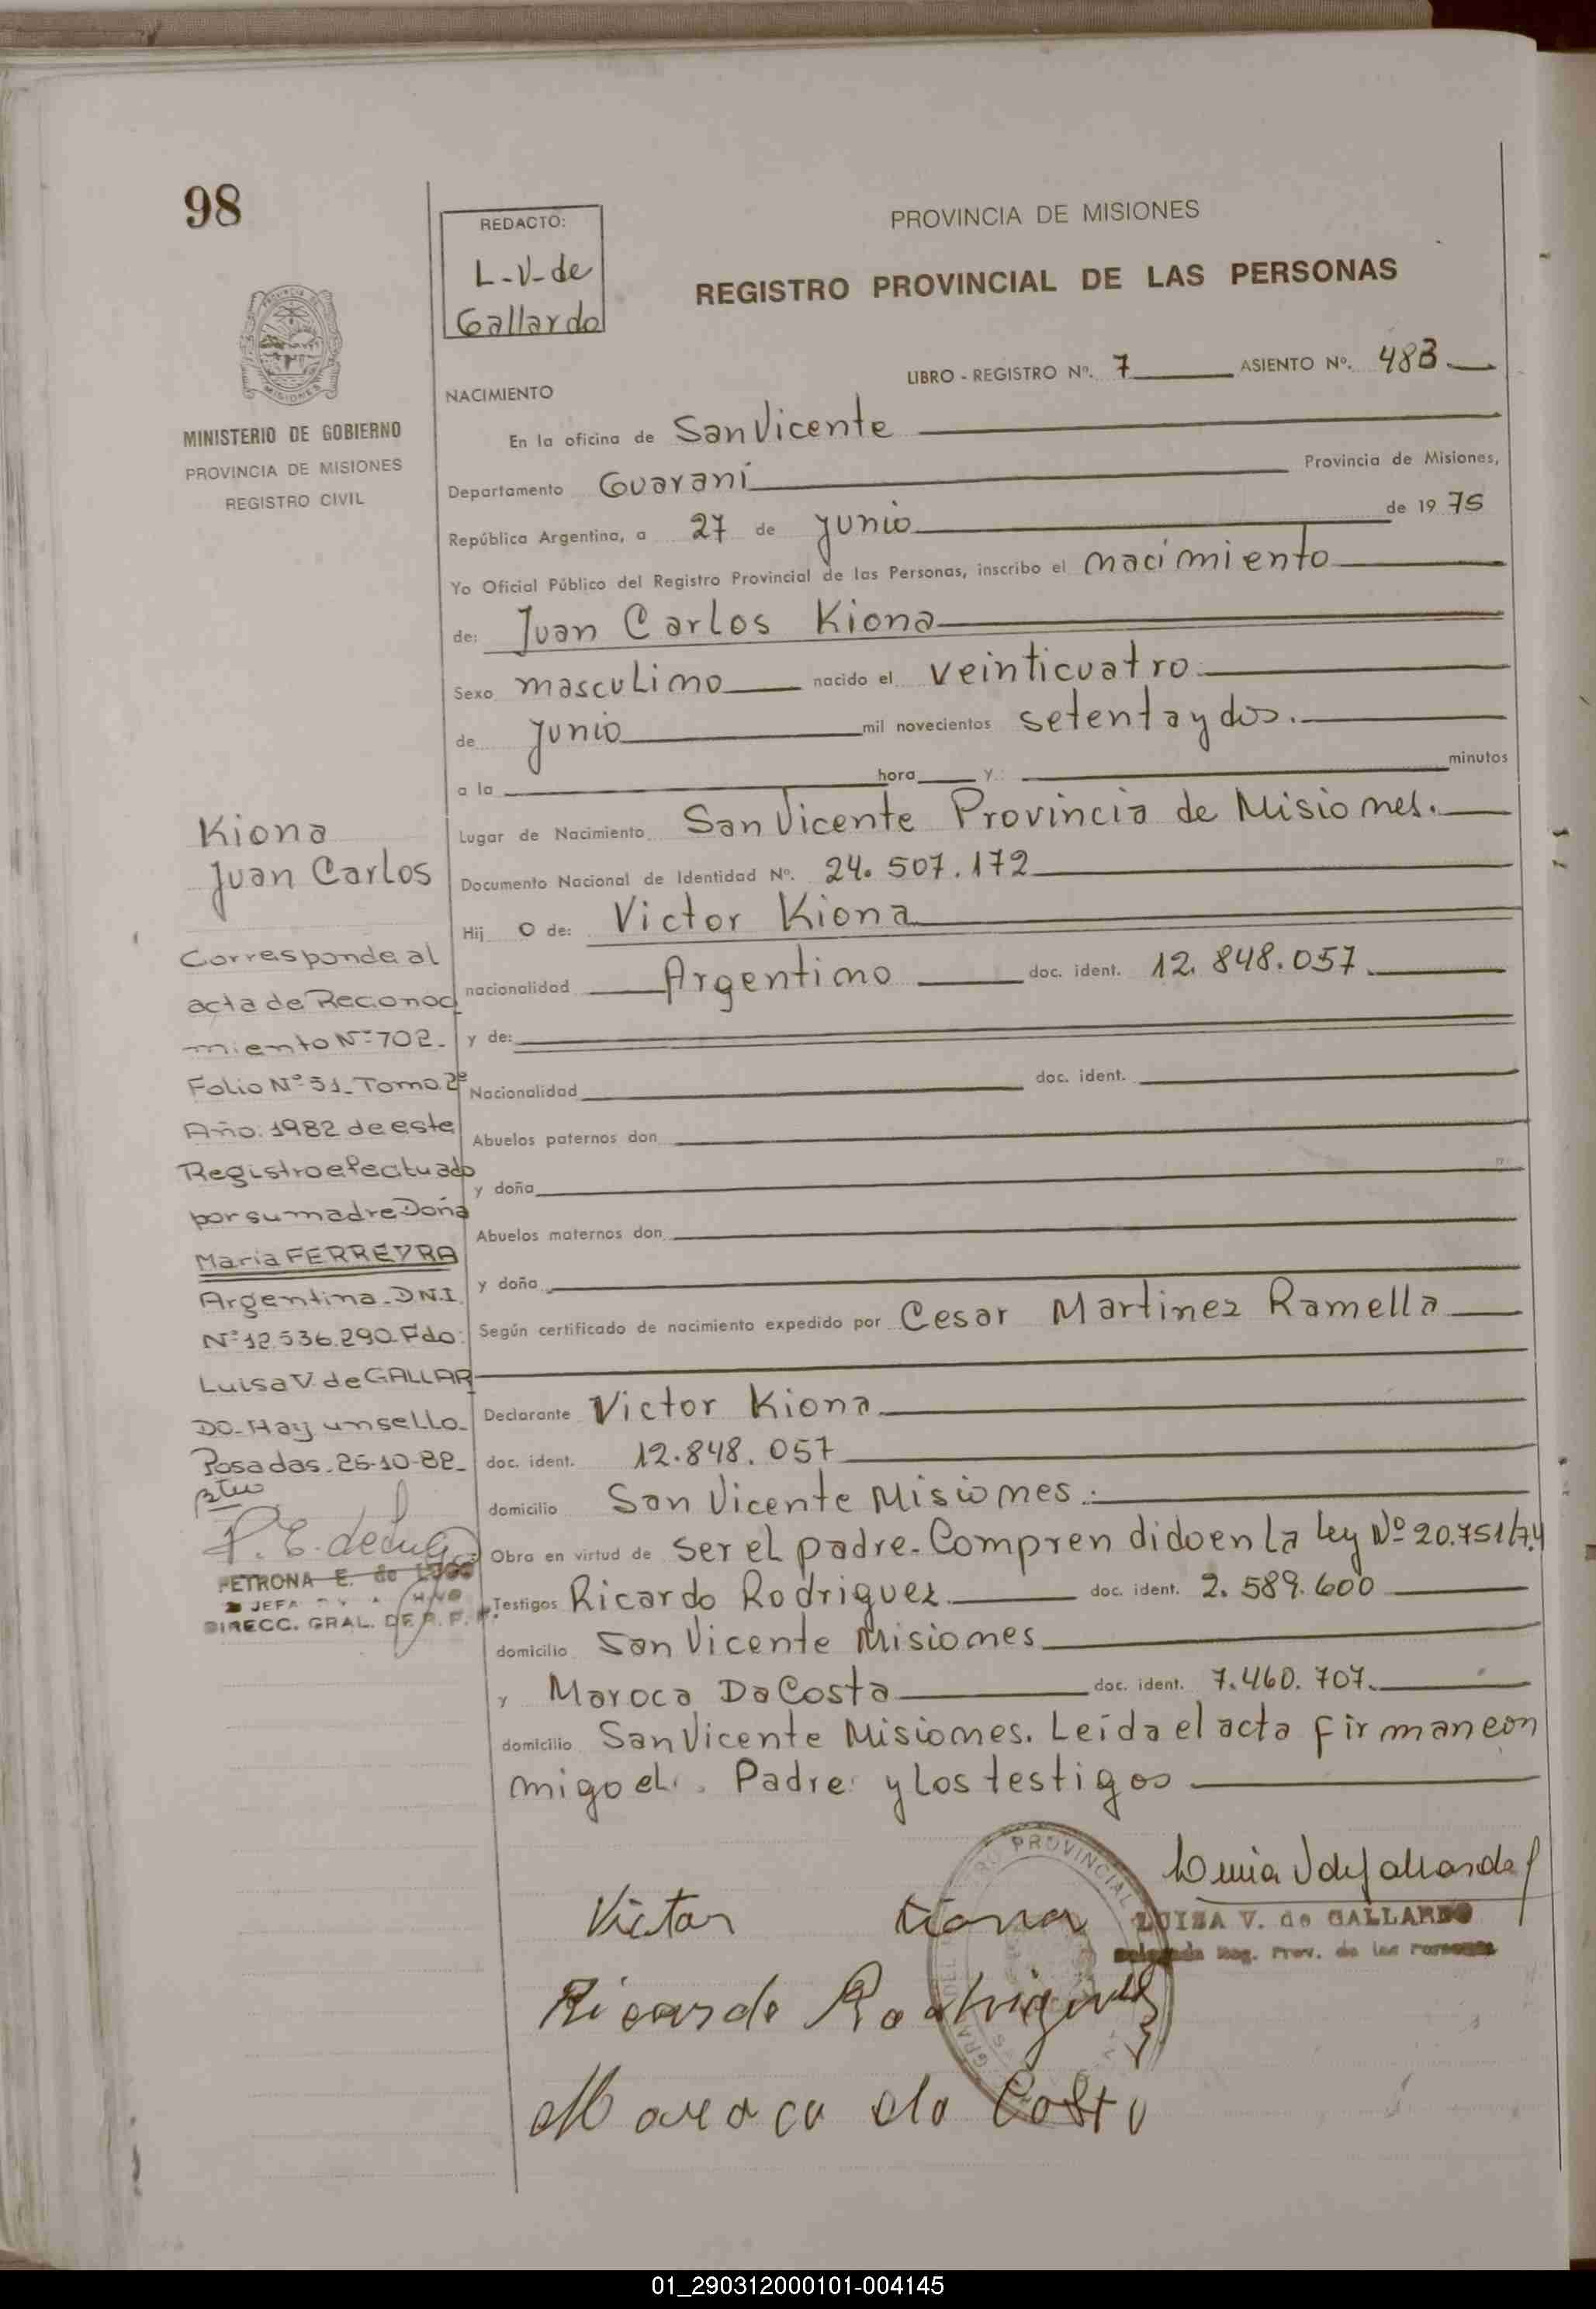 98
REDACTO:
L-V-de
Gallardo
PROVINCIA DE MISIONES
REGISTRO PROVINCIAL DE LAS PERSONAS
MISIONES
MINISTERIO DE GOBIERNO
PROVINCIA DE MISIONES
REGISTRO CIVIL
LIBRO - REGISTRO Nº. 7 ASIENTO Nº. 483
NACIMIENTO
En la oficina de San Vicente
Departamento Guaraní Provincia de Misiones,
República Argentina, a 27 de junio de 1975
Yo Oficial Público del Registro Provincial de las Personas, inscribo el nacimiento
de: Juan Carlos Kiona
Sexo masculino nacido el veinticuatro
de junio mil novecientos setenta y dos.
a la hora y minutos
Lugar de Nacimiento San Vicente Provincia de Misiones.
Documento Nacional de Identidad Nº. 24.507.172
Hij o de: Victor Kiona
nacionalidad Argentino doc. ident. 12.848.057
y de:
Nacionalidad doc. ident.
Abuelos paternos don
y doña
Abuelos maternos don
y doña
Según certificado de nacimiento expedido por Cesar Martinez Ramella
Declarante Victor Kiona
doc. ident. 12.848.057
domicilio San Vicente Misiones.
Obra en virtud de ser el padre. Comprendido en la ley Nº 20.751/74
Testigos Ricardo Rodriguez doc. ident. 2.589.600
domicilio San Vicente Misiones
y Maroca Da Costa doc. ident. 7.460.707.
domicilio San Vicente Misiones. Leída el acta firman con
migo el Padre y los testigos
Kiona
Juan Carlos
Corresponde al
acta de Reconoc
miento Nº 702.
Folio Nº 51. Tomo 2º
Año: 1982 de este
Registro efectuado
por su madre Doña
María FERREYRA
Argentina. D.N.I.
Nº 12.536.290. Fdo:
Luisa V. de GALLAR
DO. Hay un sello.
Posadas. 26-10-82.
P. E. de Lugo
PETRONA E. de LUGO
JEFA
DIRECC. GRAL. DE R. P. P.
Victor Kiona
Luisa V de Gallardo
LUISA V. de GALLARDO
Delegada Reg. Prov. de las Personas
PROVINCIAL
Ricardo Rodriguez
Maroca da Costa
01_290312000101-004145